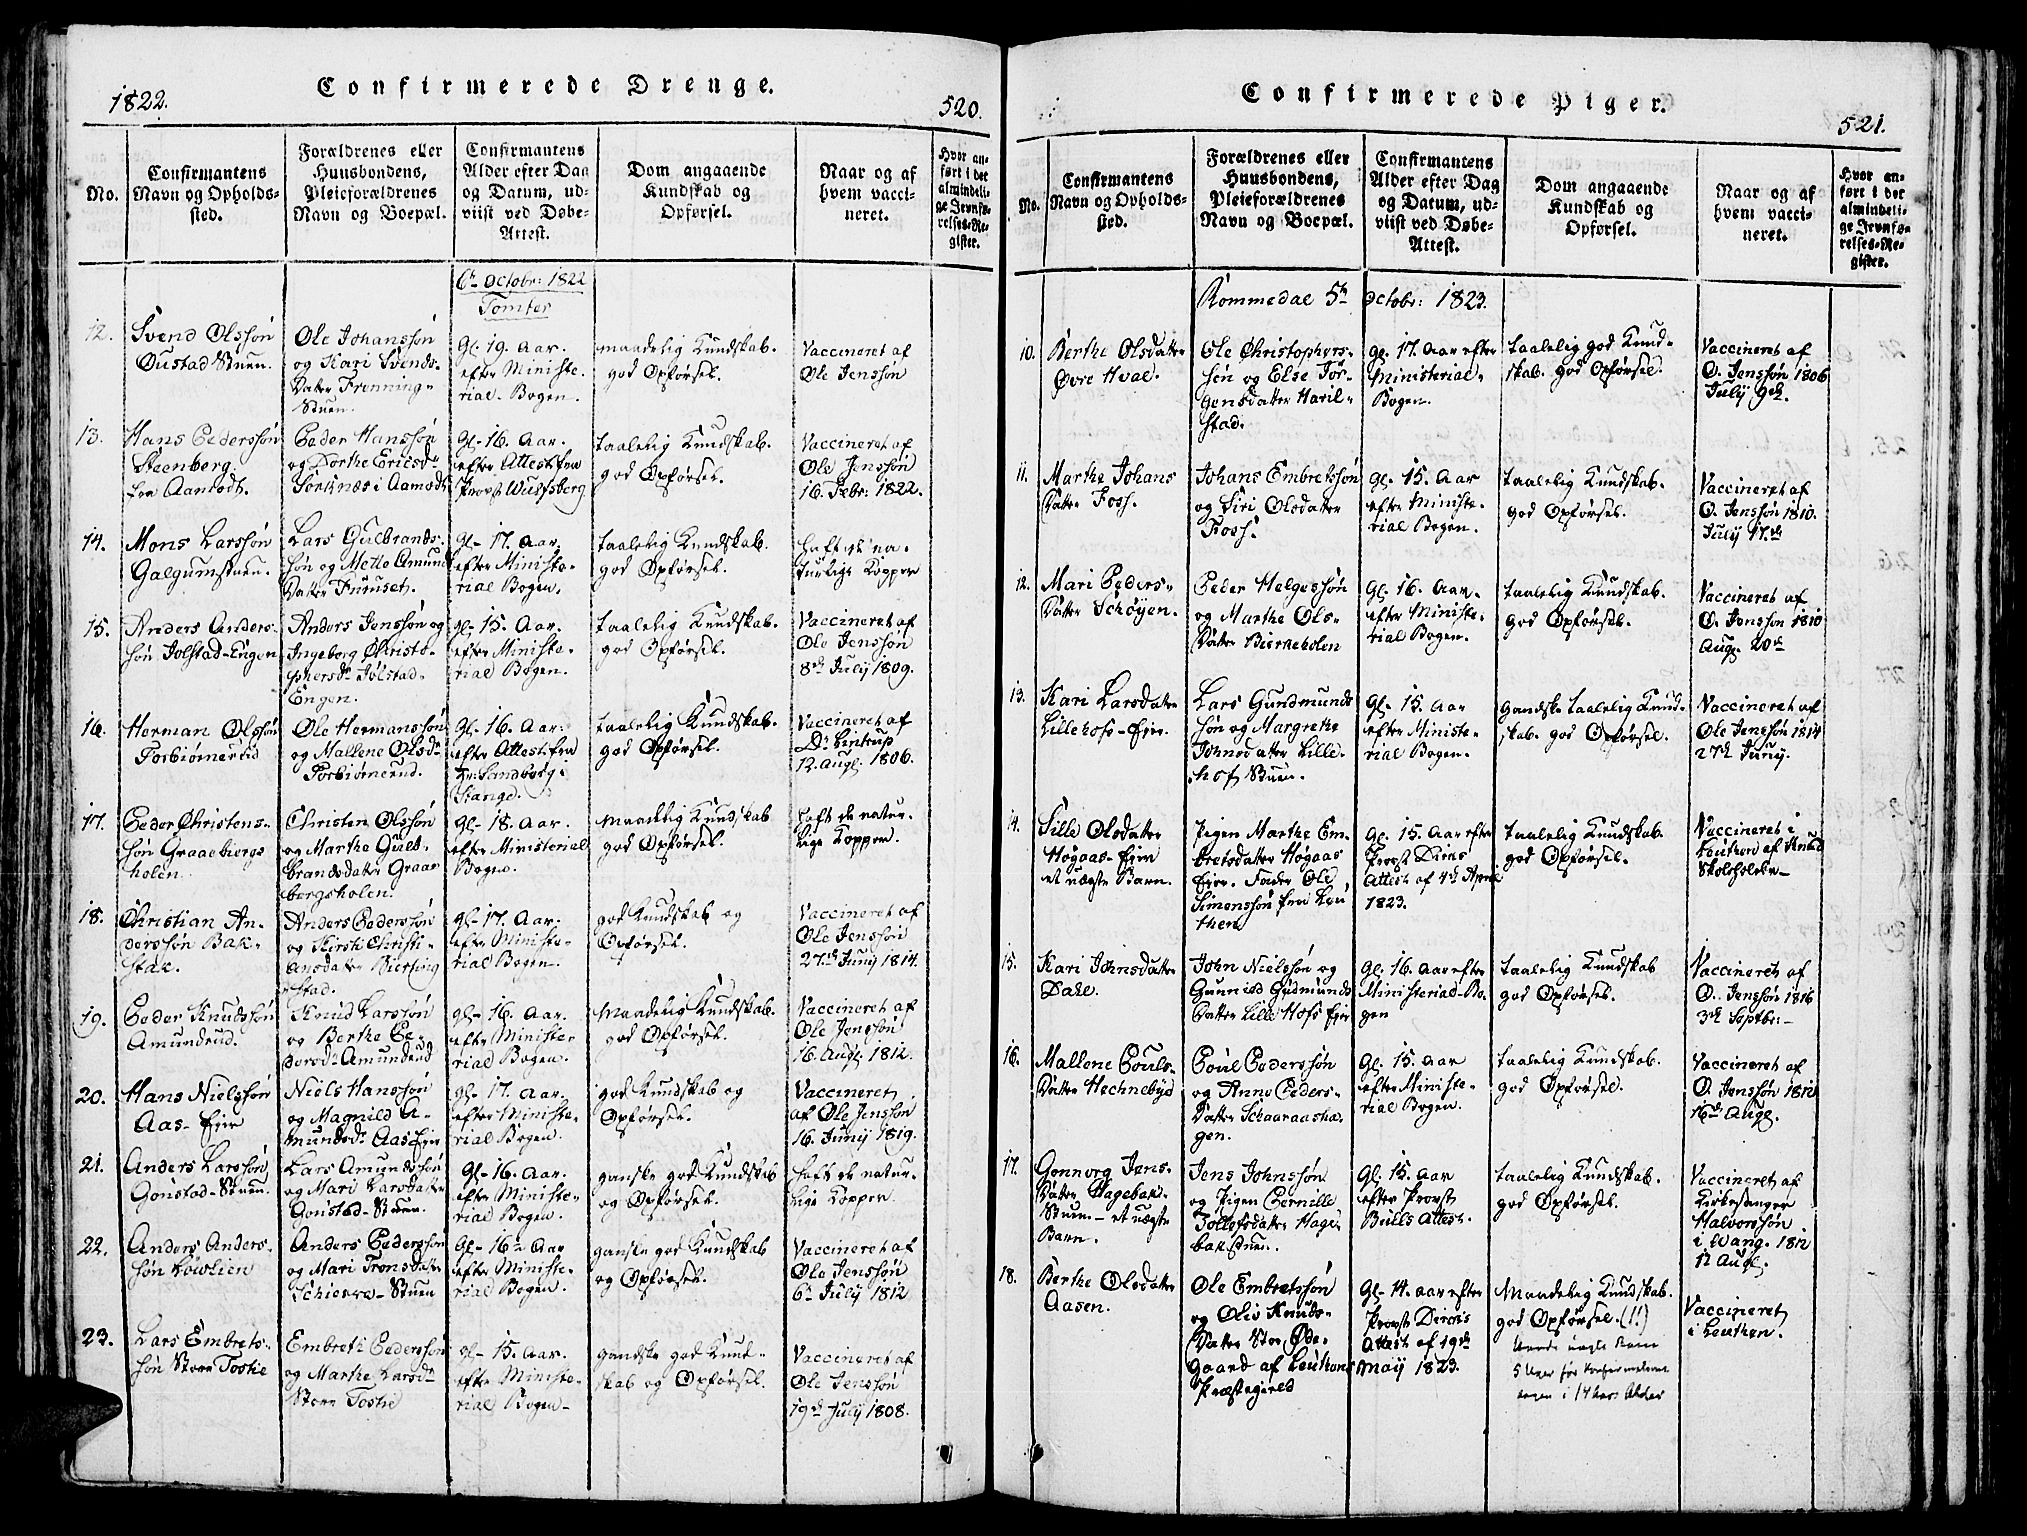 1822.
Confirmerede Drenge.
520.
No.
Confirmantens
Navn og Opholds-
sted.
Forældrenes eller
Huusbondens,
Pleieforældrenes
Navn og Boepæl.
Confirmantens
Alder efter Dag
og Datum, ud-
viist ved Døbe-
Attest.
Dom angaaende
Kundskab og
Opførsel.
Naar og af
hvem vacci-
neret.
Hvor an-
ført i det
almindeli-
ge Jevnfø-
relses-Re-
gister.
6te Octobr: 1822
Tomter
12.
Svend Olssøn
Oustad Stuen.
Ole Johanssøn
og Kari Svends-
Datter Frenning-
Stuen.
Gl. 19. Aar.
efter Ministe-
rial-Bogen.
maadelig Kundskab.
god Opførsel.
Vaccineret af
Ole Jenssøn
13.
Hans Pederssøn
Steenberg.
fra Aamodt.
Peder Hanssøn
og Dorthe Ericsdr
Sorknæs i Aamodt
Gl. 16. Aar.
efter Attest fra
Provst Wulfsberg
taalelig Kundskab.
god Opførsel.
Vaccineret af
Ole Jenssøn
16. Febr: 1822.
14.
Mons Larssøn
Galgumstuen.
Lars Gulbrands-
søn og Mette Amund
Datter Furuset.
Gl. 17. Aar.
efter Ministe-
rial Bogen.
taalelig Kundskab.
god Opførsel.
haft de na-
turlige Kopper
15.
Anders Anders-
søn Jolstad-Engen
Anders Jenssøn og
Ingeborg Christo-
phersdr Jolstad-
Engen.
Gl. 15. Aar.
efter Ministe-
rial Bogen.
taalelig Kundskab.
god Opførsel.
Vaccineret af
Ole Jenssøn
8de July 1809.
16.
Herman Olssøn
Torbiørnerud
Ole Hermanssøn
og Mallene Olsdr
Torbiørnerud.
Gl. 16. Aar.
efter Attest fra
Hr. Sandborg i
Stange.
taalelig Kundskab.
god Opførsel.
Vaccineret af
Dr
12. Aug. 1806.
17.
Peder Christens-
søn Graabergs
holen.
Christen Olssøn
og Marthe Gul-
brandsdatter Graa-
bergsholen.
Gl. 18. Aar.
efter Ministerial
Bogen.
maadelig Kundskab
god Opførsel.
haft de natur-
lige Kopper.
18.
Christian An-
derssøn Bak-
stak.
Anders Pederssøn
og Kirsti Christi-
ansdatter Biersing
stad.
Gl. 17. Aar.
efter Ministe-
rial Bogen.
god Kundskab og
Opførsel.
Vaccineret af
Ole Jenssøn
27de Juny 1814.
19.
Peder Knudssøn
Amundrud.
Knud Larssøn
og Berthe Pe-
dersdr Amundrud
Gl. 16. Aar.
efter Ministe-
rial Bogen.
maadelig Kundskab.
god Opførsel.
Vaccineret af
Ole Jenssøn
16. Aug. 1812.
20.
Hans Nielssøn
Aas-Eier
Niels Hanssøn
og Magnild A-
mundsdr Aas Eier
Gl. 17. Aar.
efter Ministe-
rial Bogen.
god Kundskab og
Opførsel.
Vaccineret
af Ole Jenssøn
16. Juny 1819.
21.
Anders Larssøn
Gonstad-Stuen.
Lars Amundssøn
og Mari Larsdatter
Gonstad-Stuen.
Gl. 16. Aar.
efter Ministe-
rial Bogen.
ganske god Kundskab
og Opførsel.
haft de natur-
lige Kopper.
22.
Anders Anders-
søn Lowlien
Anders Pederssøn
og Mari Tronsdatter
Schierre-Stuen
Gl. 16de Aar
efter Ministe-
rial Bogen.
ganske god Kundskab
og Opførsel.
Vaccineret af
Ole Jenssøn
6te July 1812
23.
Lars Embrets-
søn Store Tostie
Embret Pederssøn
og Marthe Larsdr
Store Tostie
Gl. 15. Aar.
efter Ministe-
rial Bogen-
gandske god Kund-
skab og Opførsel.
Vaccineret af
Ole Jenssøn
19de July 1808.
Confirmerede Piger.
521.
No.
Confirmantens
Navn og Opholds-
sted.
Forældrenes eller
Huusbondens,
Pleieforældrenes
Navn og Boepæl.
Confirmantens
Alder efter Dag
og Datum, ud-
viist ved Døbe-
Attest.
Dom angaaende
Kundskab og
Opførsel.
Naar og af
hvem vacci-
neret.
Hvor an-
ført i det
almindeli-
ge Jevnfø-
relses-Re-
gister.
Rommedal 5te Octobr: 1823.
10.
Berthe Olsdatter
Øvre Hval.
Ole Christophers-
søn og Else Jør-
gensdatter Haril-
stad.
Gl. 17. Aar efter
Ministerial-
Bogen.
taalelig god Kund-
skab. god Opførsel.
Vaccineret af
O. Jenssøn 1806
July 9de.
11.
Marthe Johans
Datter Foss.
Johans Embretssøn
og Siri Olsdatter
Foss.
Gl. 15. Aar
efter Ministe-
rial Bogen.
taalelig Kundskab.
god Opførsel.
Vaccineret af
O. Jenssøn 1810.
July 17de
12.
Mari Peders-
Datter Schøyen.
Peder Helgessøn
og Marthe Ols-
Datter Bierkeholen
Gl. 16. Aar.
efter Ministe-
rial Bogen.
taalelig Kundskab.
god Opførsel.
Vaccineret af
O. Jenssøn 1810
Aug. 20de
13.
Kari Larsdatter
Lillehofs-Eier.
Lars Gundmunds
søn og Margrethe
Johnsdatter Lille-
hof Stuen.
Gl. 15. Aar
efter Ministe-
rial Bogen.
gandske taalelig Kund-
skab. god Opførsel.
Vaccineret af
Ole Jenssøn 1814
27de Juny.
14.
Sille Olsdatter
Høgaas-Eien
et uægte Barn.
Pigen Marthe Em-
bretsdatter Høgaas
Eier. Fader Ole
Simenssøn fra Leu
then
Gl. 15. Aar efter
Provst Dircks
Attest af 4de April
1823.
taalelig Kundskab.
god Opførsel.
Vaccineret i
Leuthen af Knud
Skoleholder-
15.
Kari Johnsdatter
Dahl.
John Nielssøn og
Gunnild Gudmunds
Datter Lille Hofs Eier
Gl. 16. Aar efter
Ministerial-Bo-
gen
taalelig Kundskab
god Opførsel.
Vaccineret af
O. Jenssøn 1816
3de Septbr-
16.
Mallene Pouls-
Datter Hechnebye
Poul Pederssøn
og Anne Peders-
Datter Schaaraasha-
gen.
Gl. 15. Aar
efter Ministe-
rial Bogen.
taalelig Kundskab.
god Opførsel.
Vaccineret af
O. Jenssøn 1812
16de Aug.
17.
Gonnorg Jens-
Datter Hagebak-
Stuen-et uægte
Barn.
Jens Johnssøn
og Pigen Pernille
Tollefsdatter Hage-
bakstuen.
Gl. 15. Aar
efter Provst
Bulls Attest.
taalelig Kundskab.
god Opførsel.
Vaccineret af
Kirkesanger
Halvorssøn
i Wang. 1812
12 Aug.
18.
Berthe Olsdatter
Aasen.
Ole Embretssøn
og Olis Knuds-
Datter Stor Øde-
Gaard af Leuthens
Præstegield
Gl. 14. Aar efter
Provst Dircks
Attest af 19de
May 1823.
Maadelig Kundskab.
god Opførsel. (!!)
5 Uger før Confirmationen
i 14 Aars Alder
Vaccineret
i Leuthen.